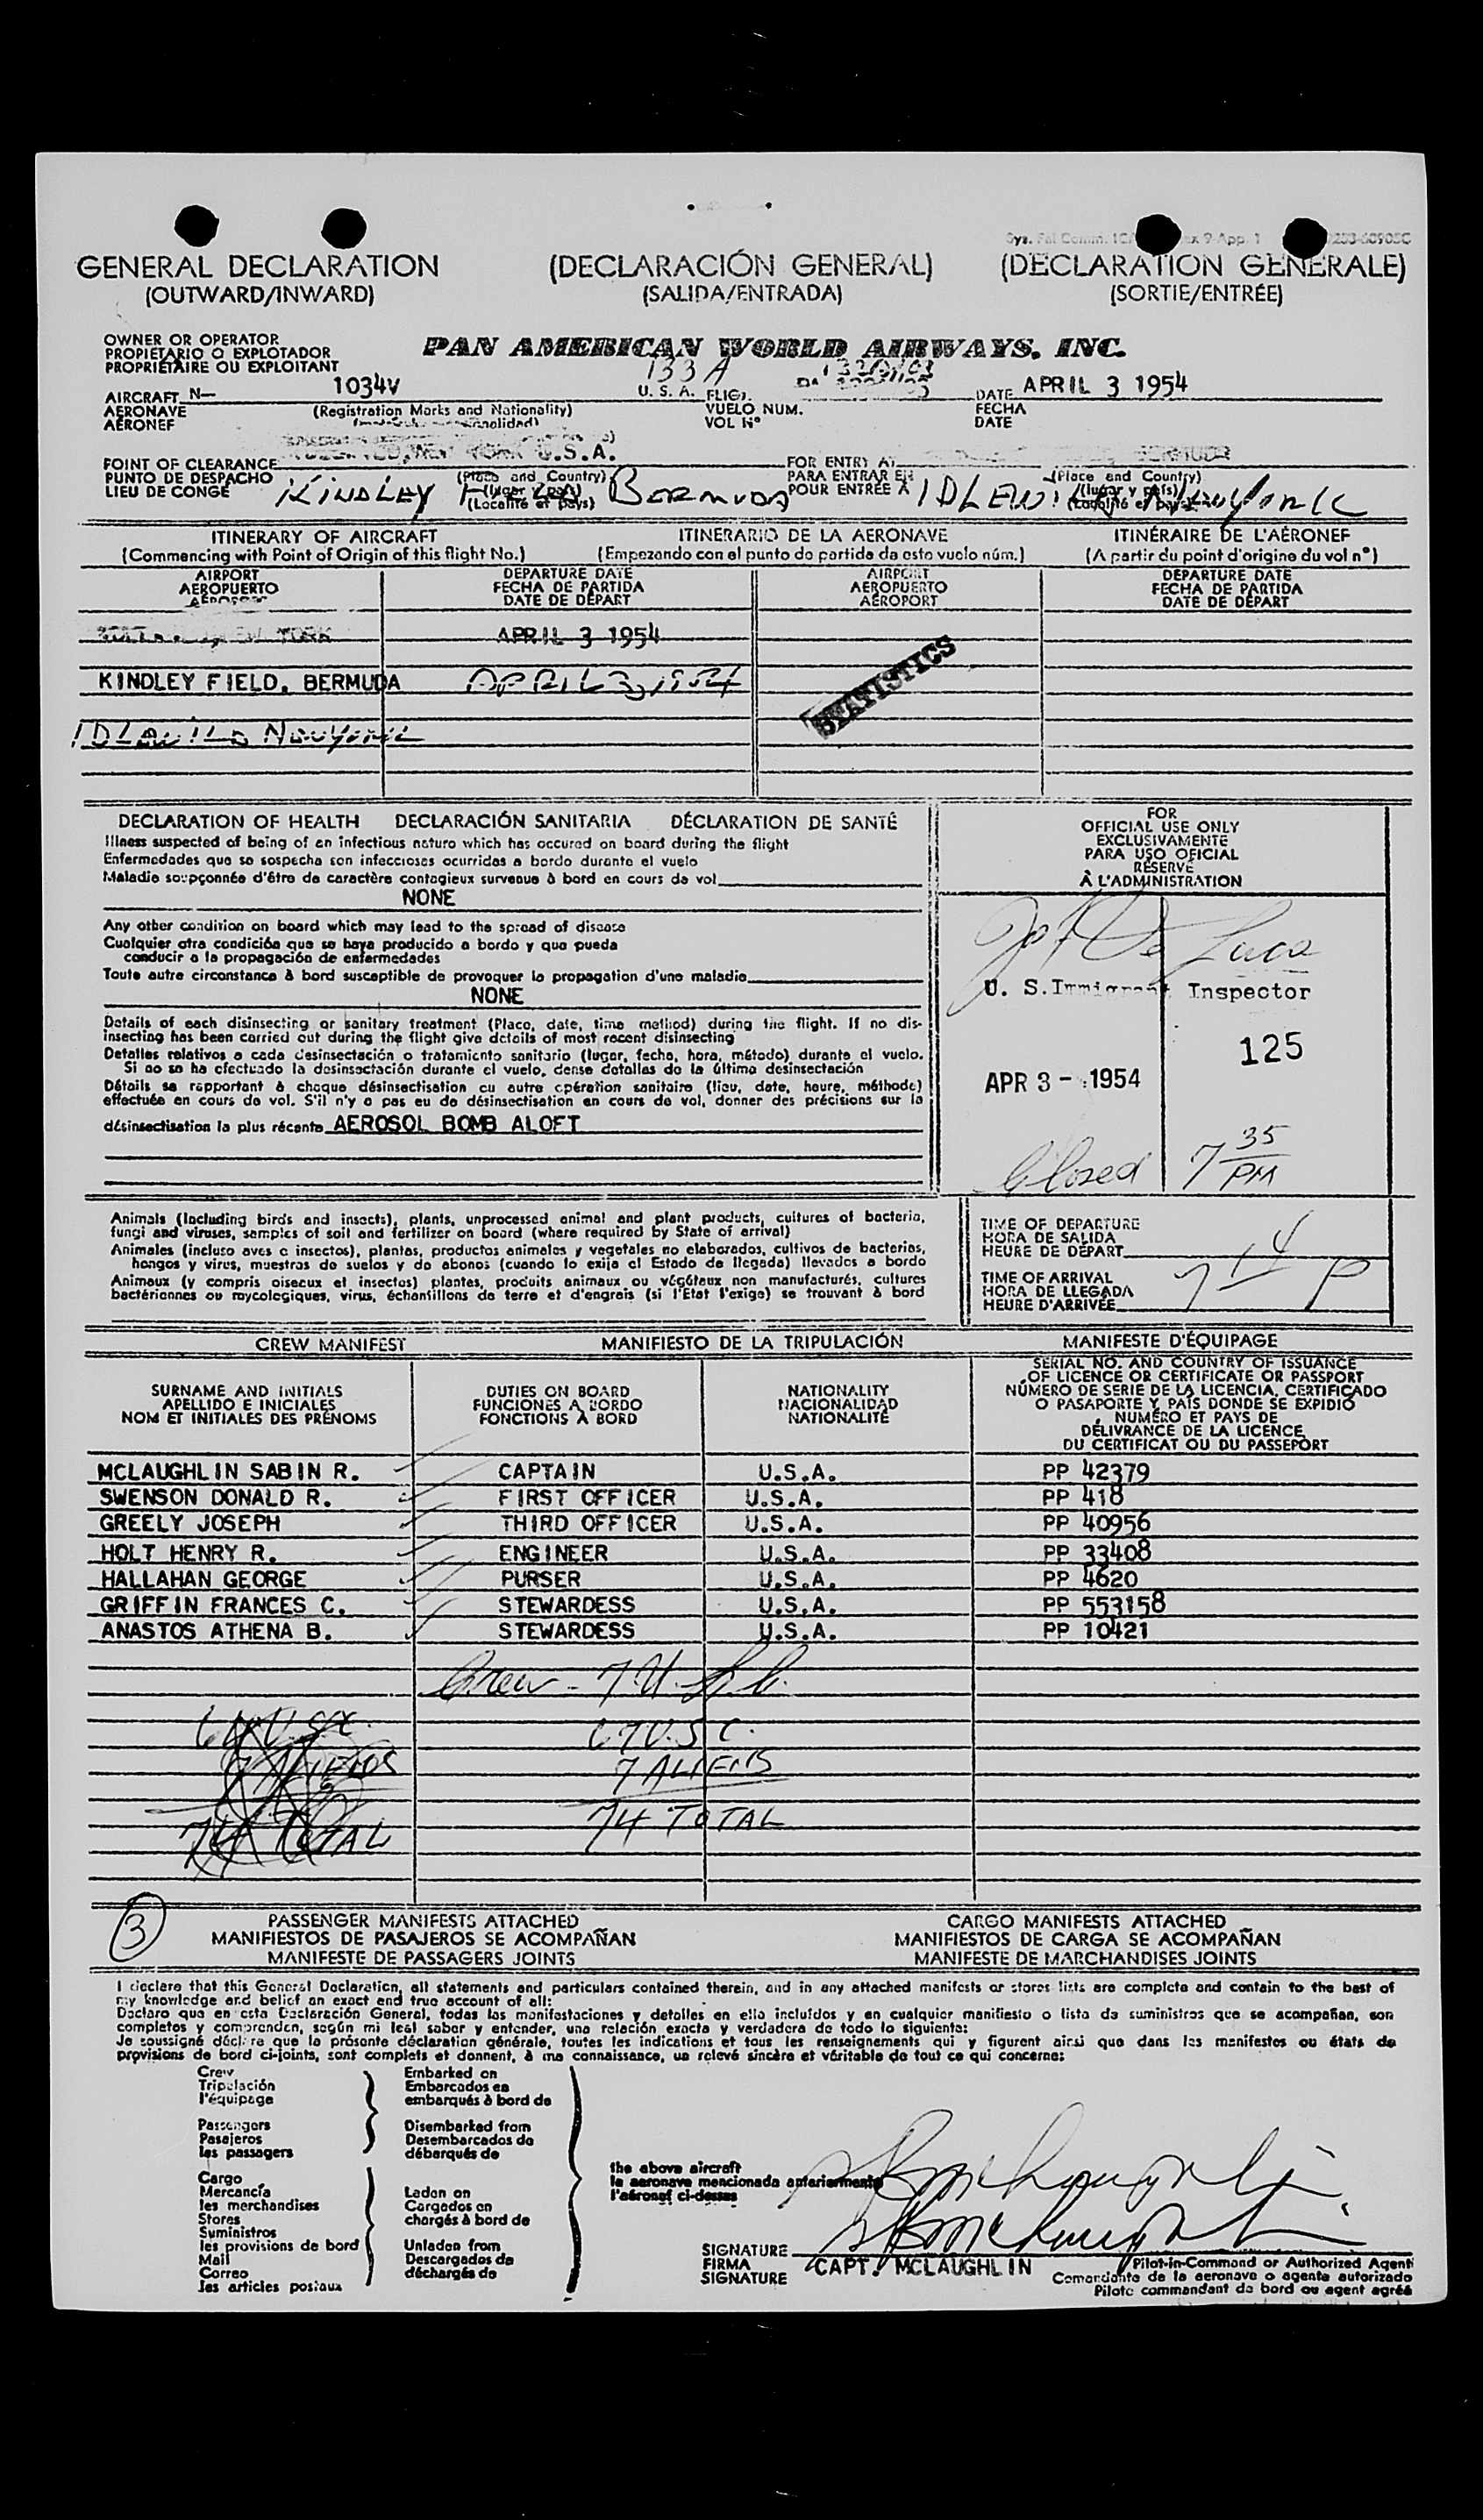 GENERAL DECLARATION (DECLARACIÓN GENERAL) (DECLARATION GENERALE)
(OUTWARD/INWARD) (SALIDA/ENTRADA) (SORTIE/ENTRÉE)
OWNER OR OPERATOR
PROPIETARIO O EXPLOTADOR
PROPRIÉTAIRE OU EXPLOITANT
PAN AMERICAN WORLD AIRWAYS, INC.
133A
AIRCRAFT N— 1034V U. S. A. DATE APRIL 3 1954
AERONAVE (Registration Marks and Nationality) VUELO NUM. FECHA
AÉRONEF VOL Nº DATE
NEW YORK U.S.A.
POINT OF CLEARANCE (Place and Country) FOR ENTRY AT BERMUDA (Place and Country)
PUNTO DE DESPACHO PARA ENTRAR EN (lugar y país)
LIEU DE CONGÉ (Localité et pays) POUR ENTRÉE À
KINDLEY FIELD BERMUDA IDLEWILD NEW YORK
ITINERARY OF AIRCRAFT ITINERARIO DE LA AERONAVE ITINÉRAIRE DE L'AÉRONEF
(Commencing with Point of Origin of this flight No.) (Empezando con el punto de partida de este vuelo núm.) (A partir du point d'origine du vol nº)
AIRPORT DEPARTURE DATE AIRPORT DEPARTURE DATE
AEROPUERTO FECHA DE PARTIDA AEROPUERTO FECHA DE PARTIDA
AÉROPORT DATE DE DÉPART AÉROPORT DATE DE DÉPART
NEW YORK APRIL 3 1954
KINDLEY FIELD, BERMUDA APRIL 3, 1954
STATISTICS
IDLEWILD NEW YORK
DECLARATION OF HEALTH DECLARACIÓN SANITARIA DÉCLARATION DE SANTÉ
Illness suspected of being of an infectious nature which has occured on board during the flight
Enfermedades que se sospecha son infecciosas ocurridas a bordo durante el vuelo
Maladie soupçonnée d'être de caractère contagieux survenue à bord en cours de vol
NONE
Any other condition on board which may lead to the spread of disease
Cualquier otra condición que se haya producido a bordo y que pueda
conducir a la propagación de enfermedades
Toute autre circonstance à bord susceptible de provoquer la propagation d'une maladie
NONE
Details of each disinsecting or sanitary treatment (Place, date, time method) during the flight. If no dis-
insecting has been carried out during the flight give details of most recent disinsecting
Detalles relativos a cada desinsectación o tratamiento sanitario (lugar, fecha, hora, método) durante el vuelo.
Si no se ha efectuado la desinsectación durante el vuelo, dense detalles de la última desinsectación
Détails se rapportant à chaque désinsectisation ou autre opération sanitaire (lieu, date, heure, méthode)
effectuée en cours de vol. S'il n'y a pas eu de désinsectisation en cours de vol, donner des précisions sur la
désinsectisation la plus récente AEROSOL BOMB ALOFT
FOR
OFFICIAL USE ONLY
EXCLUSIVAMENTE
PARA USO OFICIAL
RÉSERVÉ
À L'ADMINISTRATION
De Luca
U. S. Immigrant Inspector
125
APR 3 - 1954
Closed 7 35 PM
Animals (Including birds and insects), plants, unprocessed animal and plant products, cultures of bacteria,
fungi and viruses, samples of soil and fertilizer on board (where required by State of arrival)
Animales (incluso aves e insectos), plantas, productos animales y vegetales no elaborados, cultivos de bacterias,
hongos y virus, muestras de suelos y de abonos (cuando lo exija el Estado de llegada) llevados a bordo
Animaux (y compris oiseaux et insectes) plantes, produits animaux ou végétaux non manufacturés, cultures
bactériennes ou mycologiques, virus, échantillons de terre et d'engrais (si l'Etat l'exige) se trouvant à bord
TIME OF DEPARTURE
HORA DE SALIDA
HEURE DE DÉPART
TIME OF ARRIVAL
HORA DE LLEGADA
HEURE D'ARRIVÉE
7 14 P
CREW MANIFEST MANIFIESTO DE LA TRIPULACIÓN MANIFESTE D'ÉQUIPAGE
SURNAME AND INITIALS
APELLIDO E INICIALES
NOM ET INITIALES DES PRÉNOMS
DUTIES ON BOARD
FUNCIONES A BORDO
FONCTIONS À BORD
NATIONALITY
NACIONALIDAD
NATIONALITÉ
SERIAL NO. AND COUNTRY OF ISSUANCE
OF LICENCE OR CERTIFICATE OR PASSPORT
NÚMERO DE SERIE DE LA LICENCIA, CERTIFICADO
O PASAPORTE Y PAÍS DONDE SE EXPIDIÓ
NUMÉRO ET PAYS DE
DÉLIVRANCE DE LA LICENCE
DU CERTIFICAT OU DU PASSEPORT
MCLAUGHLIN SABIN R. CAPTAIN U.S.A. PP 42379
SWENSON DONALD R. FIRST OFFICER U.S.A. PP 418
GREELY JOSEPH THIRD OFFICER U.S.A. PP 40956
HOLT HENRY R. ENGINEER U.S.A. PP 33408
HALLAHAN GEORGE PURSER U.S.A. PP 4620
GRIFFIN FRANCES C. STEWARDESS U.S.A. PP 553158
ANASTOS ATHENA B. STEWARDESS U.S.A. PP 10421
Crew - 7 U.S.C.
67 U.S C.
7 ALIENS 7 ALIENS
74 TOTAL 74 TOTAL
3
PASSENGER MANIFESTS ATTACHED CARGO MANIFESTS ATTACHED
MANIFIESTOS DE PASAJEROS SE ACOMPAÑAN MANIFIESTOS DE CARGA SE ACOMPAÑAN
MANIFESTE DE PASSAGERS JOINTS MANIFESTE DE MARCHANDISES JOINTS
I declare that this General Declaration, all statements and particulars contained therein, and in any attached manifests or stores lists are complete and contain to the best of
my knowledge and belief an exact and true account of all:
Declaro que en esta Declaración General, todas las manifestaciones y detalles en ella incluídos y en cualquier manifiesto o lista de suministros que se acompañan, son
completos y comprenden, según mi leal saber y entender, una relación exacta y verdadera de todo lo siguiente:
Je soussigné déclare que la présente déclaration générale, toutes les indications et tous les renseignements qui y figurent ainsi que dans les manifestes ou états de
provisions de bord ci-joints, sont complets et donnent, à ma connaissance, un relevé sincère et véritable de tout ce qui concerne:
Crew
Tripulación
l'équipage
Passengers
Pasajeros
les passagers
Cargo
Mercancía
les merchandises
Stores
Suministros
les provisions de bord
Mail
Correo
les articles postaux
Embarked on
Embarcados en
embarqués à bord de
Disembarked from
Desembarcados de
débarqués de
Laden on
Cargados en
chargés à bord de
Unladen from
Descargados de
déchargés de
the above aircraft
la aeronave mencionada anteriormente
l'aéronef ci-dessus
SR McLaughlin
SR McLaughlin
SIGNATURE
FIRMA
SIGNATURE
CAPT. MCLAUGHLIN
Pilot-in-Command or Authorized Agent
Comandante de la aeronave o agente autorizado
Pilote commandant de bord ou agent agréé